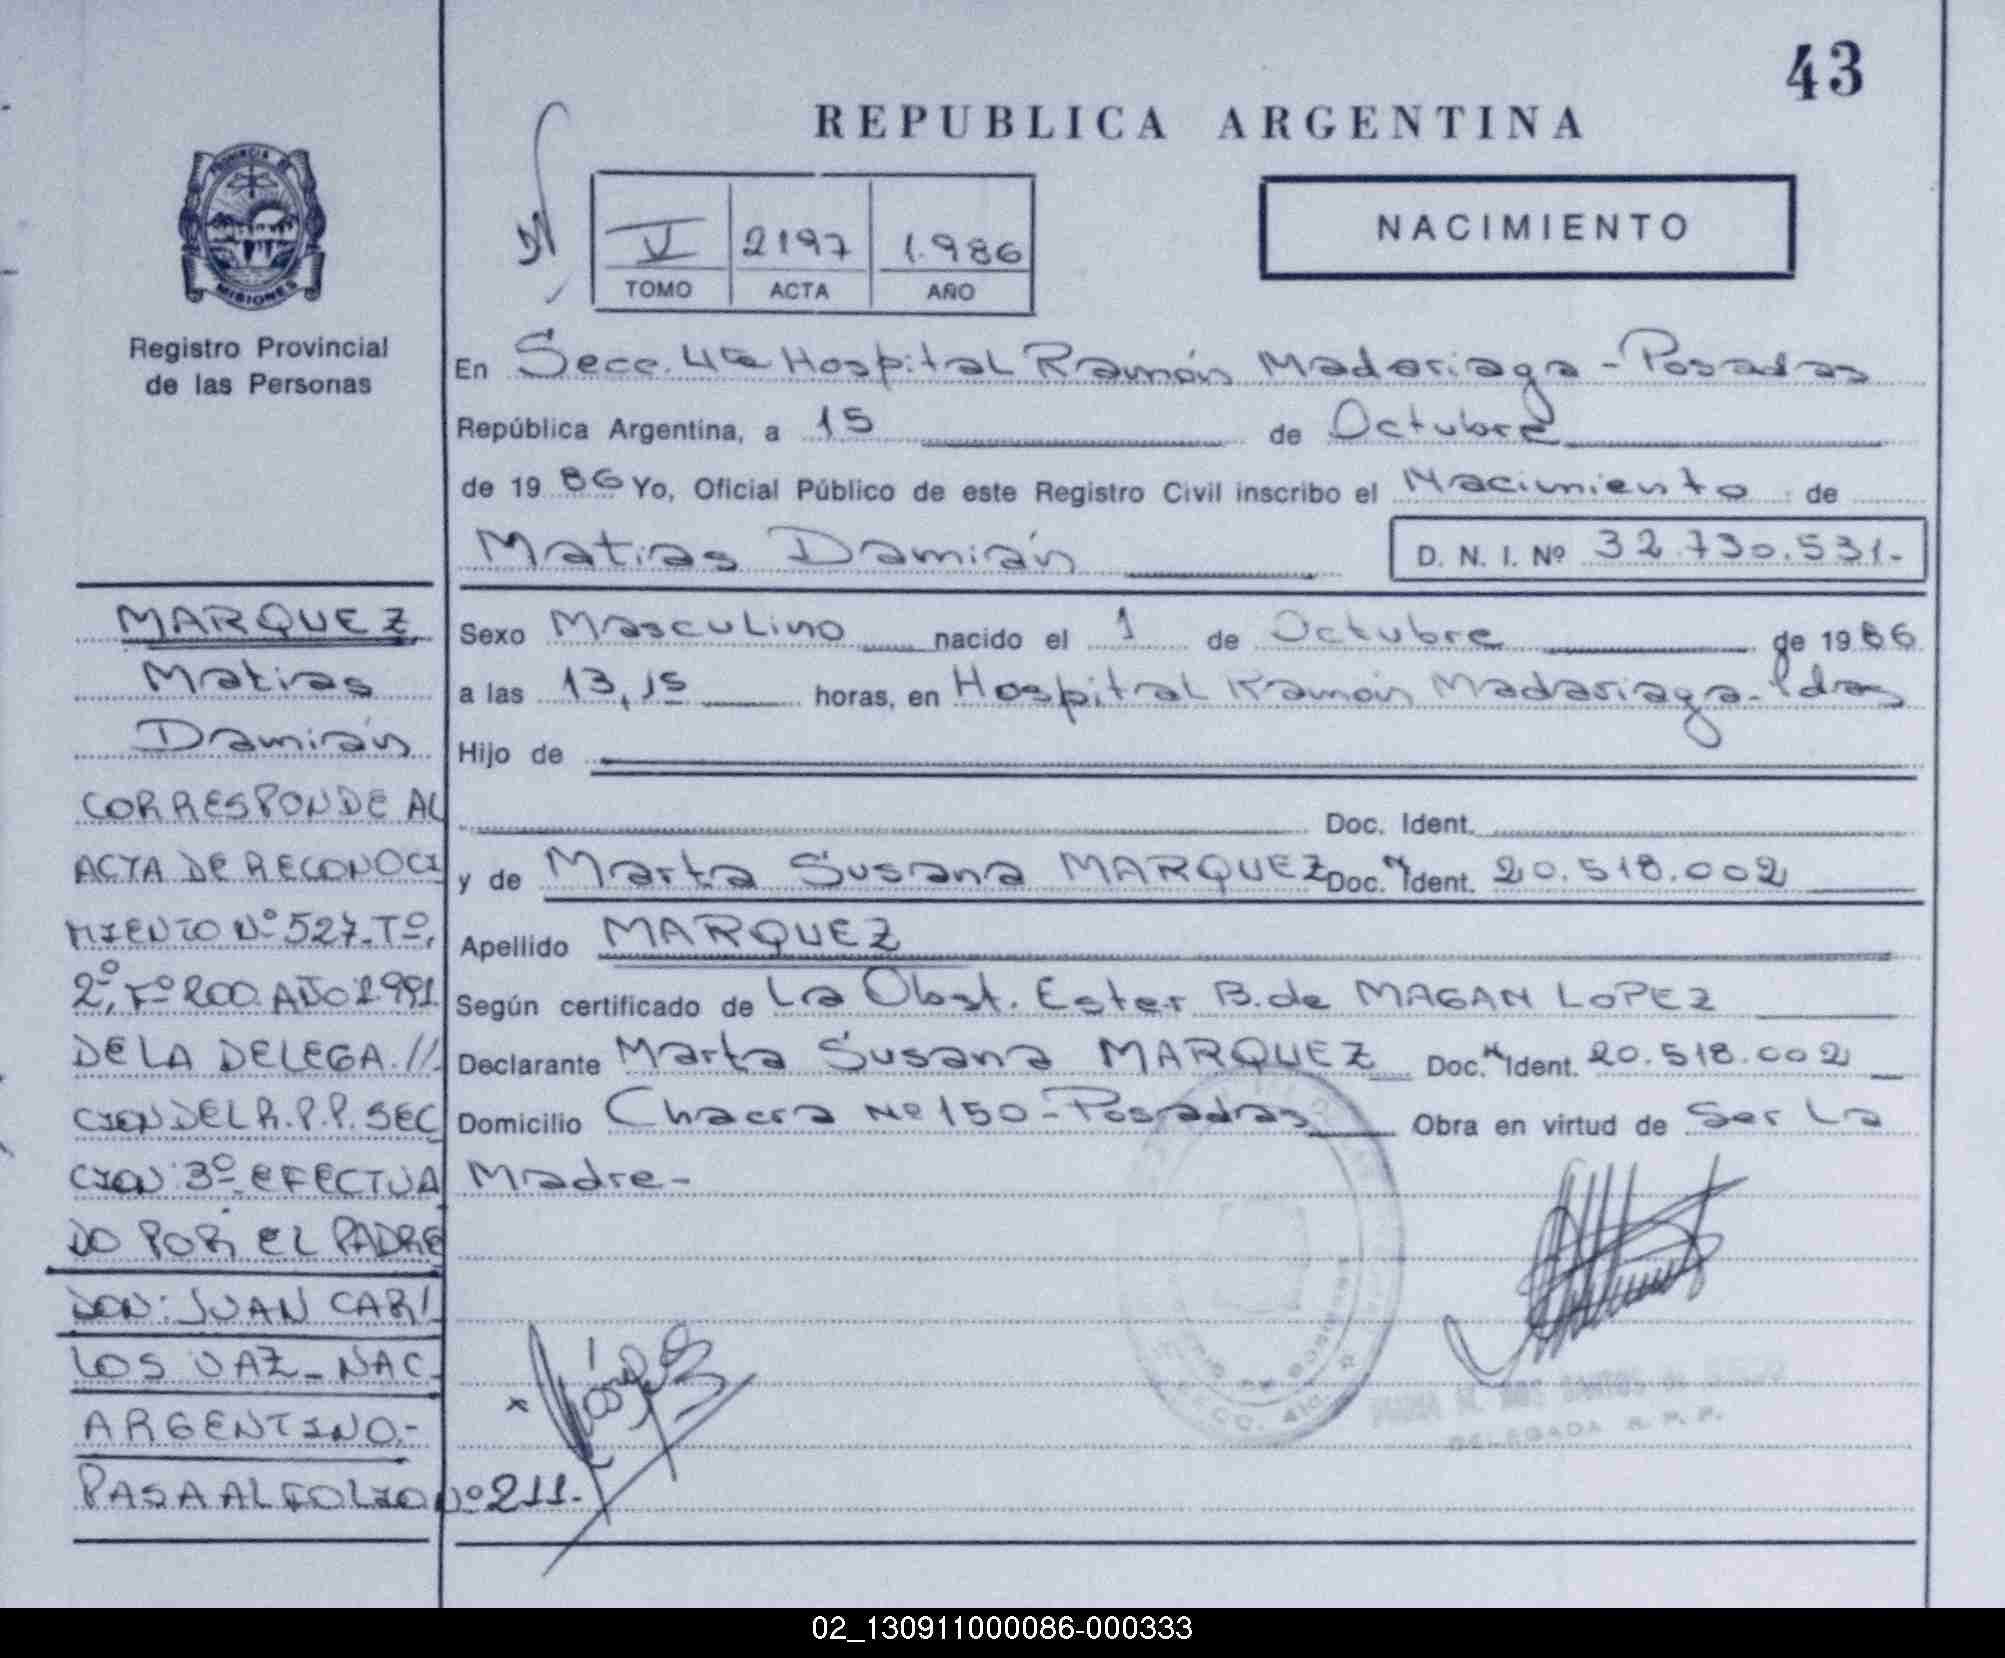 43
REPUBLICA ARGENTINA
PROVINCIA DE
MISIONES
Registro Provincial
de las Personas
V 2197 1.986
TOMO ACTA AÑO
NACIMIENTO
En Secc. 4ta Hospital Ramón Madariaga - Posadas
República Argentina, a 15 de Octubre
de 19 86 Yo, Oficial Público de este Registro Civil inscribo el Nacimiento de
Matias Damián D. N. I. Nº 32.730.531.-
Sexo Masculino nacido el 1 de Octubre de 19 86
a las 13,15 horas, en Hospital Ramón Madariaga - Pdas
Hijo de
Doc. Ident.
y de Marta Susana MARQUEZ Doc. Ident. 20.518.002
Apellido MARQUEZ
Según certificado de La Obst. Ester B. de MAGAN LOPEZ
Declarante Marta Susana MARQUEZ Doc. Ident. 20.518.002
Domicilio Chacra Nº 150 - Posadas Obra en virtud de Ser La
Madre -
MARQUEZ
Matias
Damián
CORRESPONDE AL
ACTA DE RECONOCI
MIENTO Nº 527. Tº,
2º, Fº 200. AÑO 1991
DE LA DELEGA. //
CION DEL R.P.P. SEC
CION 3º EFECTUA
DO POR EL PADRE
DON: JUAN CAR/
LOS VAZ - NAC.
ARGENTINO.-
PASA AL FOLIO Nº 211.
DELEGADA R. P. P.
02_130911000086-000333